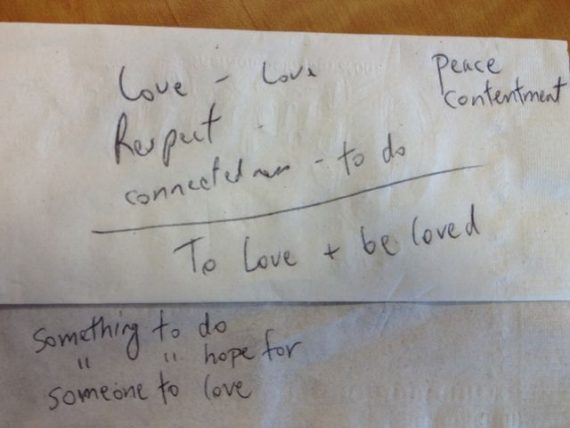 Love - Love
Peace
contentment
Respect -
connectedness - to do
To Love + be loved
something to do
" " hope for
someone to love